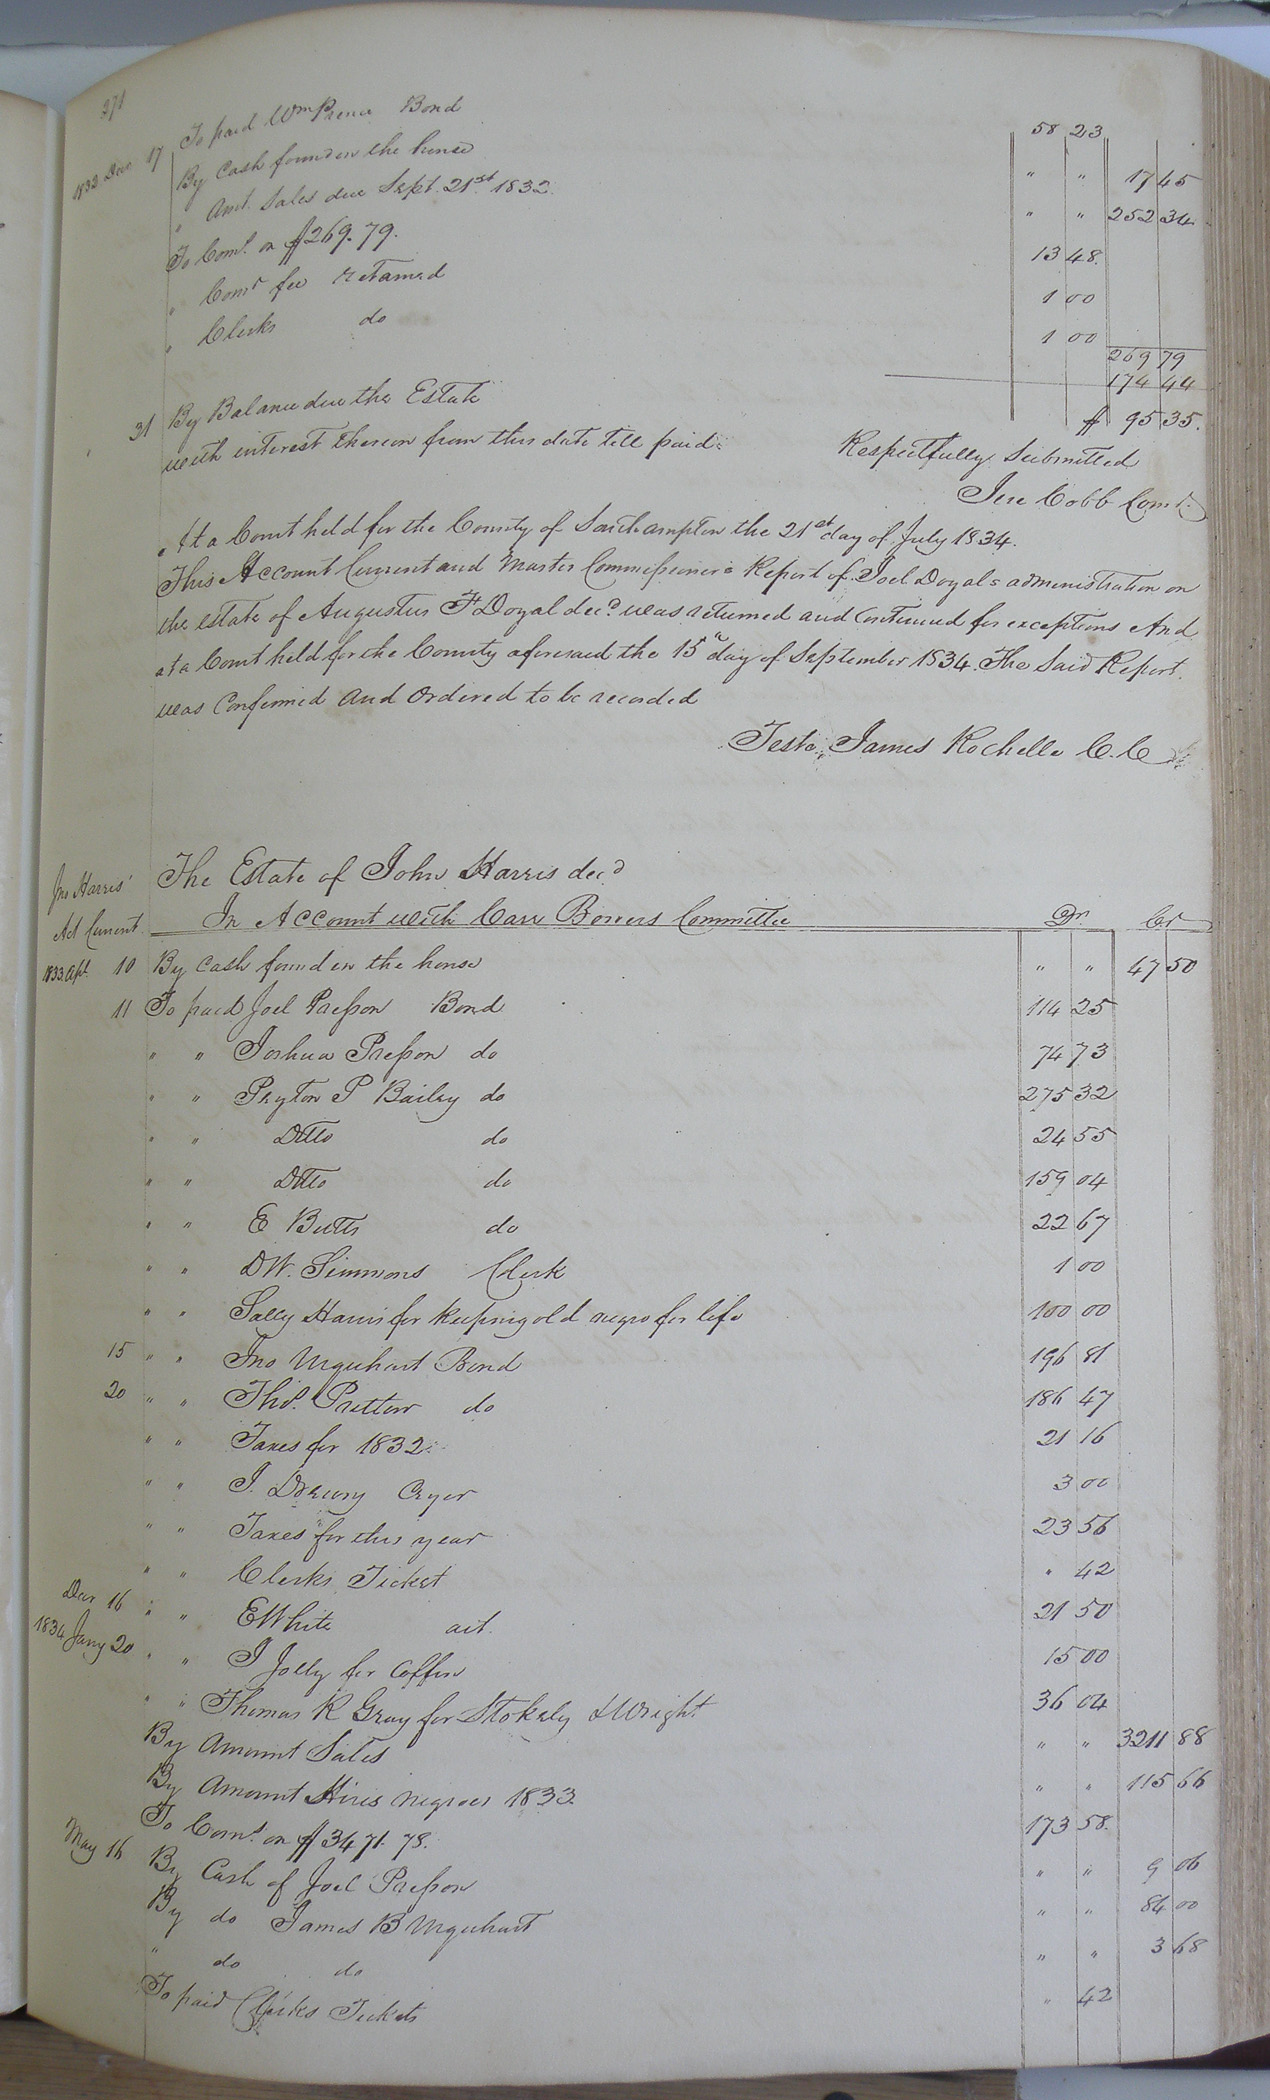 271
To paid Wm Bond 58 23
1832 Decr 17 By Cash found in the house " " 17 45
" Amt. Sales due Sept. 21st 1832 " " 252 34
To Coms. on $269.79. 13 48.
" Comr fee retained 1 00
" Clerks do 1 00
269 79
174 44
31 By Balance due the Estate $ 95 35.
with interest thereon from this date till paid.
Respectfully Submitted
Jere Cobb Comr.
At a Court held for the County of Southampton the 21st day of July 1834.
This Account Current and Master Commissioners Report of Joel Doyals administration on
the estate of Augustus F Doyal decd. was returned and Continued for exceptions And
at a Court held for the County aforesaid the 15th day of September 1834. The Said Report
was Confirmed and Ordered to be recorded
Teste, James Rochelle C.C
Jno Harris'
Act Current
The Estate of John Harris decd
In Account with Carr Bowers Committee Dr. Cr
1833 Apl. 10 By Cash found in the house " " 47 50
11 To paid Joel Presson Bond 114 25
" " Joshua Presson do 74 73
" " Peyton P Bailey do 275 32
" " Ditto do 24 55
" " Ditto do 159 04
" " E Butts do 22 67
" " DW. Simmons Clerk 1 00
" " Sally Harris for keeping old negro for life 100 00
15 " " Jno Urquhart Bond 196 81
20 " " Thos. Pretlow do 186 47
" " Taxes for 1832 21 16
" " J. Drewry Cryer 3 00
" " Taxes for this year 23 56
" " Clerks Ticket " 42
Decr 16 " " E White act. 21 50
1834 Jany 20 " " J Jolly for Coffin 15 00
" " Thomas R Gray for Stokely & Wright 36 04
By Amount Sales " " 3211 88
By Amount Hires negroes 1833 " " 115 66
To Coms. on $3471.78. 173 58.
May 16 By Cash of Joel Presson " " 9 06
By do James B Urquhart " " 84 00
" do do " " 3 68
To paid Clerks Tickets " 42